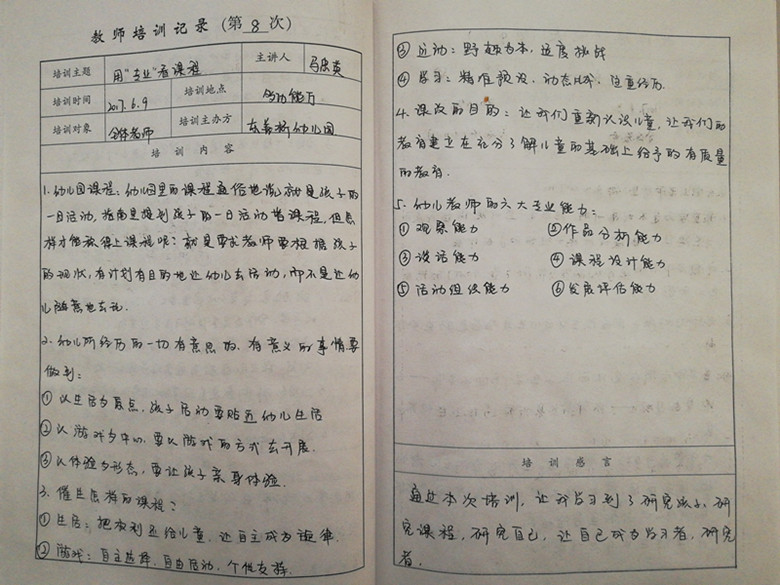 教师培训记录（第 8 次）
培训主题 用"专业"看课程 主讲人
培训时间 2017.6.9 培训地点 多功能厅
培训对象 全体老师 培训主办方 东 桥幼儿园
培训内容
1.幼儿园课程：幼儿园里的课程通俗地说就是孩子的
一日活动，指南里提到孩子的一日活动皆课程，但怎
样才能称得上课程呢？就是要求老师要根据孩子
的现状，有计划有目的地让幼儿去活动，而不是让幼
儿随意地去玩.
2.幼儿所经历的一切有意思的、有意义的事情要
做到：
①以生活为原点，孩子活动要贴近幼儿生活
②以游戏为中心，要以游戏的方式去开展.
③以体验为形态，要让孩子亲身体验.
3.催生怎样的课程？
①生活：把权利还给儿童，让自主成为旋律.
②游戏：自主选择，自由活动，个性支持.
③运动：野趣为本，适度挑战
④学习：精准预设，动态 ，注重经历.
4.课改的目的：让我们重新认识儿童，让我们的
教育建立在充分了解儿童的基础上给予的有质量
的教育.
5.幼儿教师的六大专业能力：
①观察能力 ②作品分析能力
③谈话能力 ④课程设计能力
⑤活动组织能力 ⑥发展评估能力
培训感言
通过本次培训，让我学习到了研究孩子、研
究课程，研究自己，让自己成为学习者，研究
者.